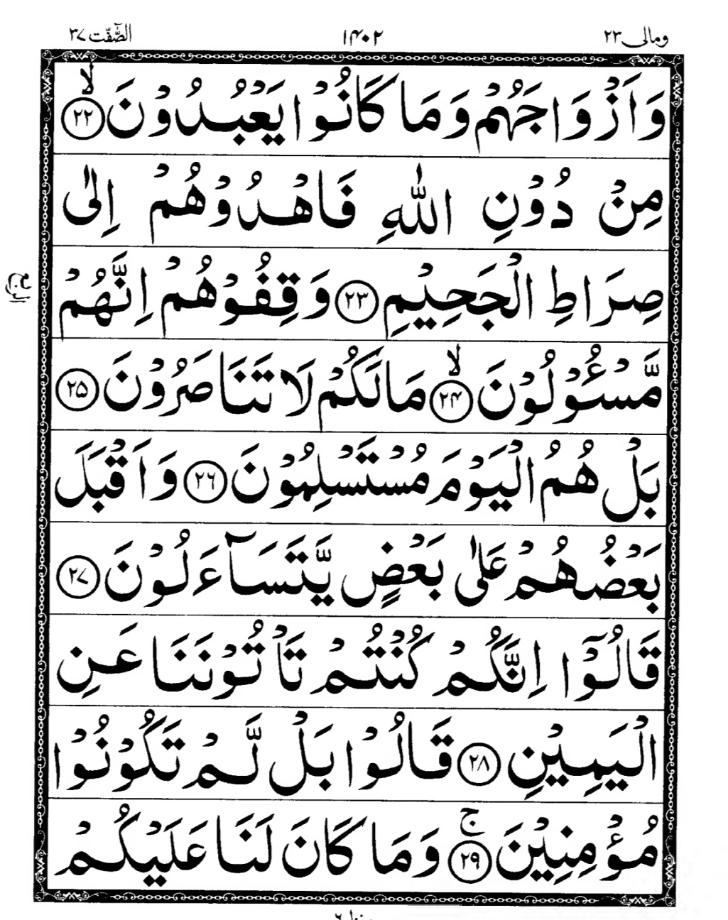 ومالی ۲۳ ۱۴۰۲ الصّٰفّٰت ۳۷
وَاَزْوَاجَهُمْ وَمَا كَانُوْا يَعْبُدُوْنَ ۙ ﴿۲۲﴾
مِنْ دُوْنِ اللّٰهِ فَاهْدُوْهُمْ اِلٰى
صِرَاطِ الْجَحِيْمِ ﴿۲۳﴾ وَقِفُوْهُمْ اِنَّهُمْ
مَّسْـُٔوْلُوْنَ ۙ ﴿۲۴﴾ مَا لَكُمْ لَا تَنَاصَرُوْنَ ﴿۲۵﴾
بَلْ هُمُ الْيَوْمَ مُسْتَسْلِمُوْنَ ﴿۲۶﴾ وَاَقْبَلَ
بَعْضُهُمْ عَلٰى بَعْضٍ يَّتَسَآءَلُوْنَ ﴿۲۷﴾
قَالُوْٓا اِنَّكُمْ كُنْتُمْ تَاْتُوْنَنَا عَنِ
الْيَمِيْنِ ﴿۲۸﴾ قَالُوْا بَلْ لَّمْ تَكُوْنُوْا
مُؤْمِنِيْنَ ۚ ﴿۲۹﴾ وَمَا كَانَ لَنَا عَلَيْكُمْ